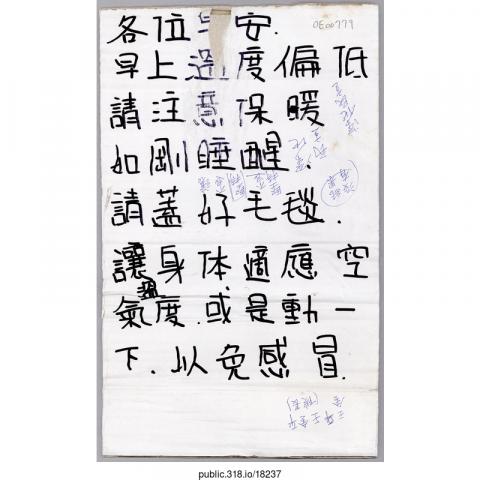 各位早安.
早上溫度偏低
請注意保暖
如剛睡醒.
請蓋好毛毯.
讓身体適應空
氣溫度.或是動一
下.以免感冒.
OE00779
public.318.io/18237